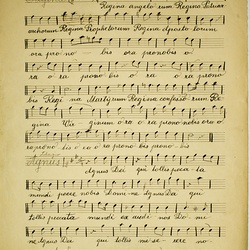 Regina angelo rum Regina Patriar
archarum Regina Prophetarum Regina Aposto lorum
ora pro no bis ora pronobis o
ra o ra prono bis o ra o ra prono
bis Regi na Martyrum Regina confesso rum Re
gina o ra o ra pro nobis ora o ra
pronobis
Agnus Agnus Dei qui tollis pecca ta
mundi parce nobis Domi ne Agnus Dei qui
tollis peccata mundi ex audi nos Do mi
ne Agnus Dei qui tollis mi se re re no